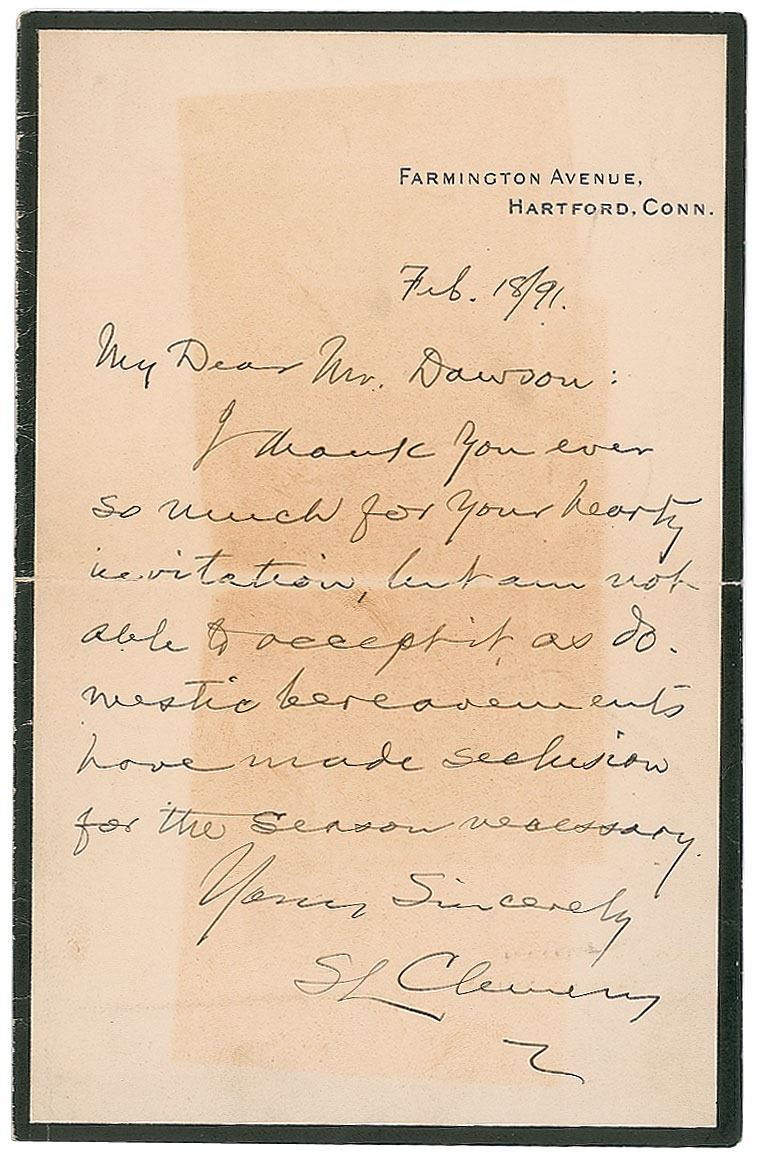 FARMINGTON AVENUE,
HARTFORD, CONN.
Feb. 18/91.
My Dear Mr. Dawson:
I thank you ever
so much for your hearty
invitation, but am not
able to accept it, as do-
mestic bereavements
have made seclusion
for the season necessary.
Yours Sincerely
SL Clemens